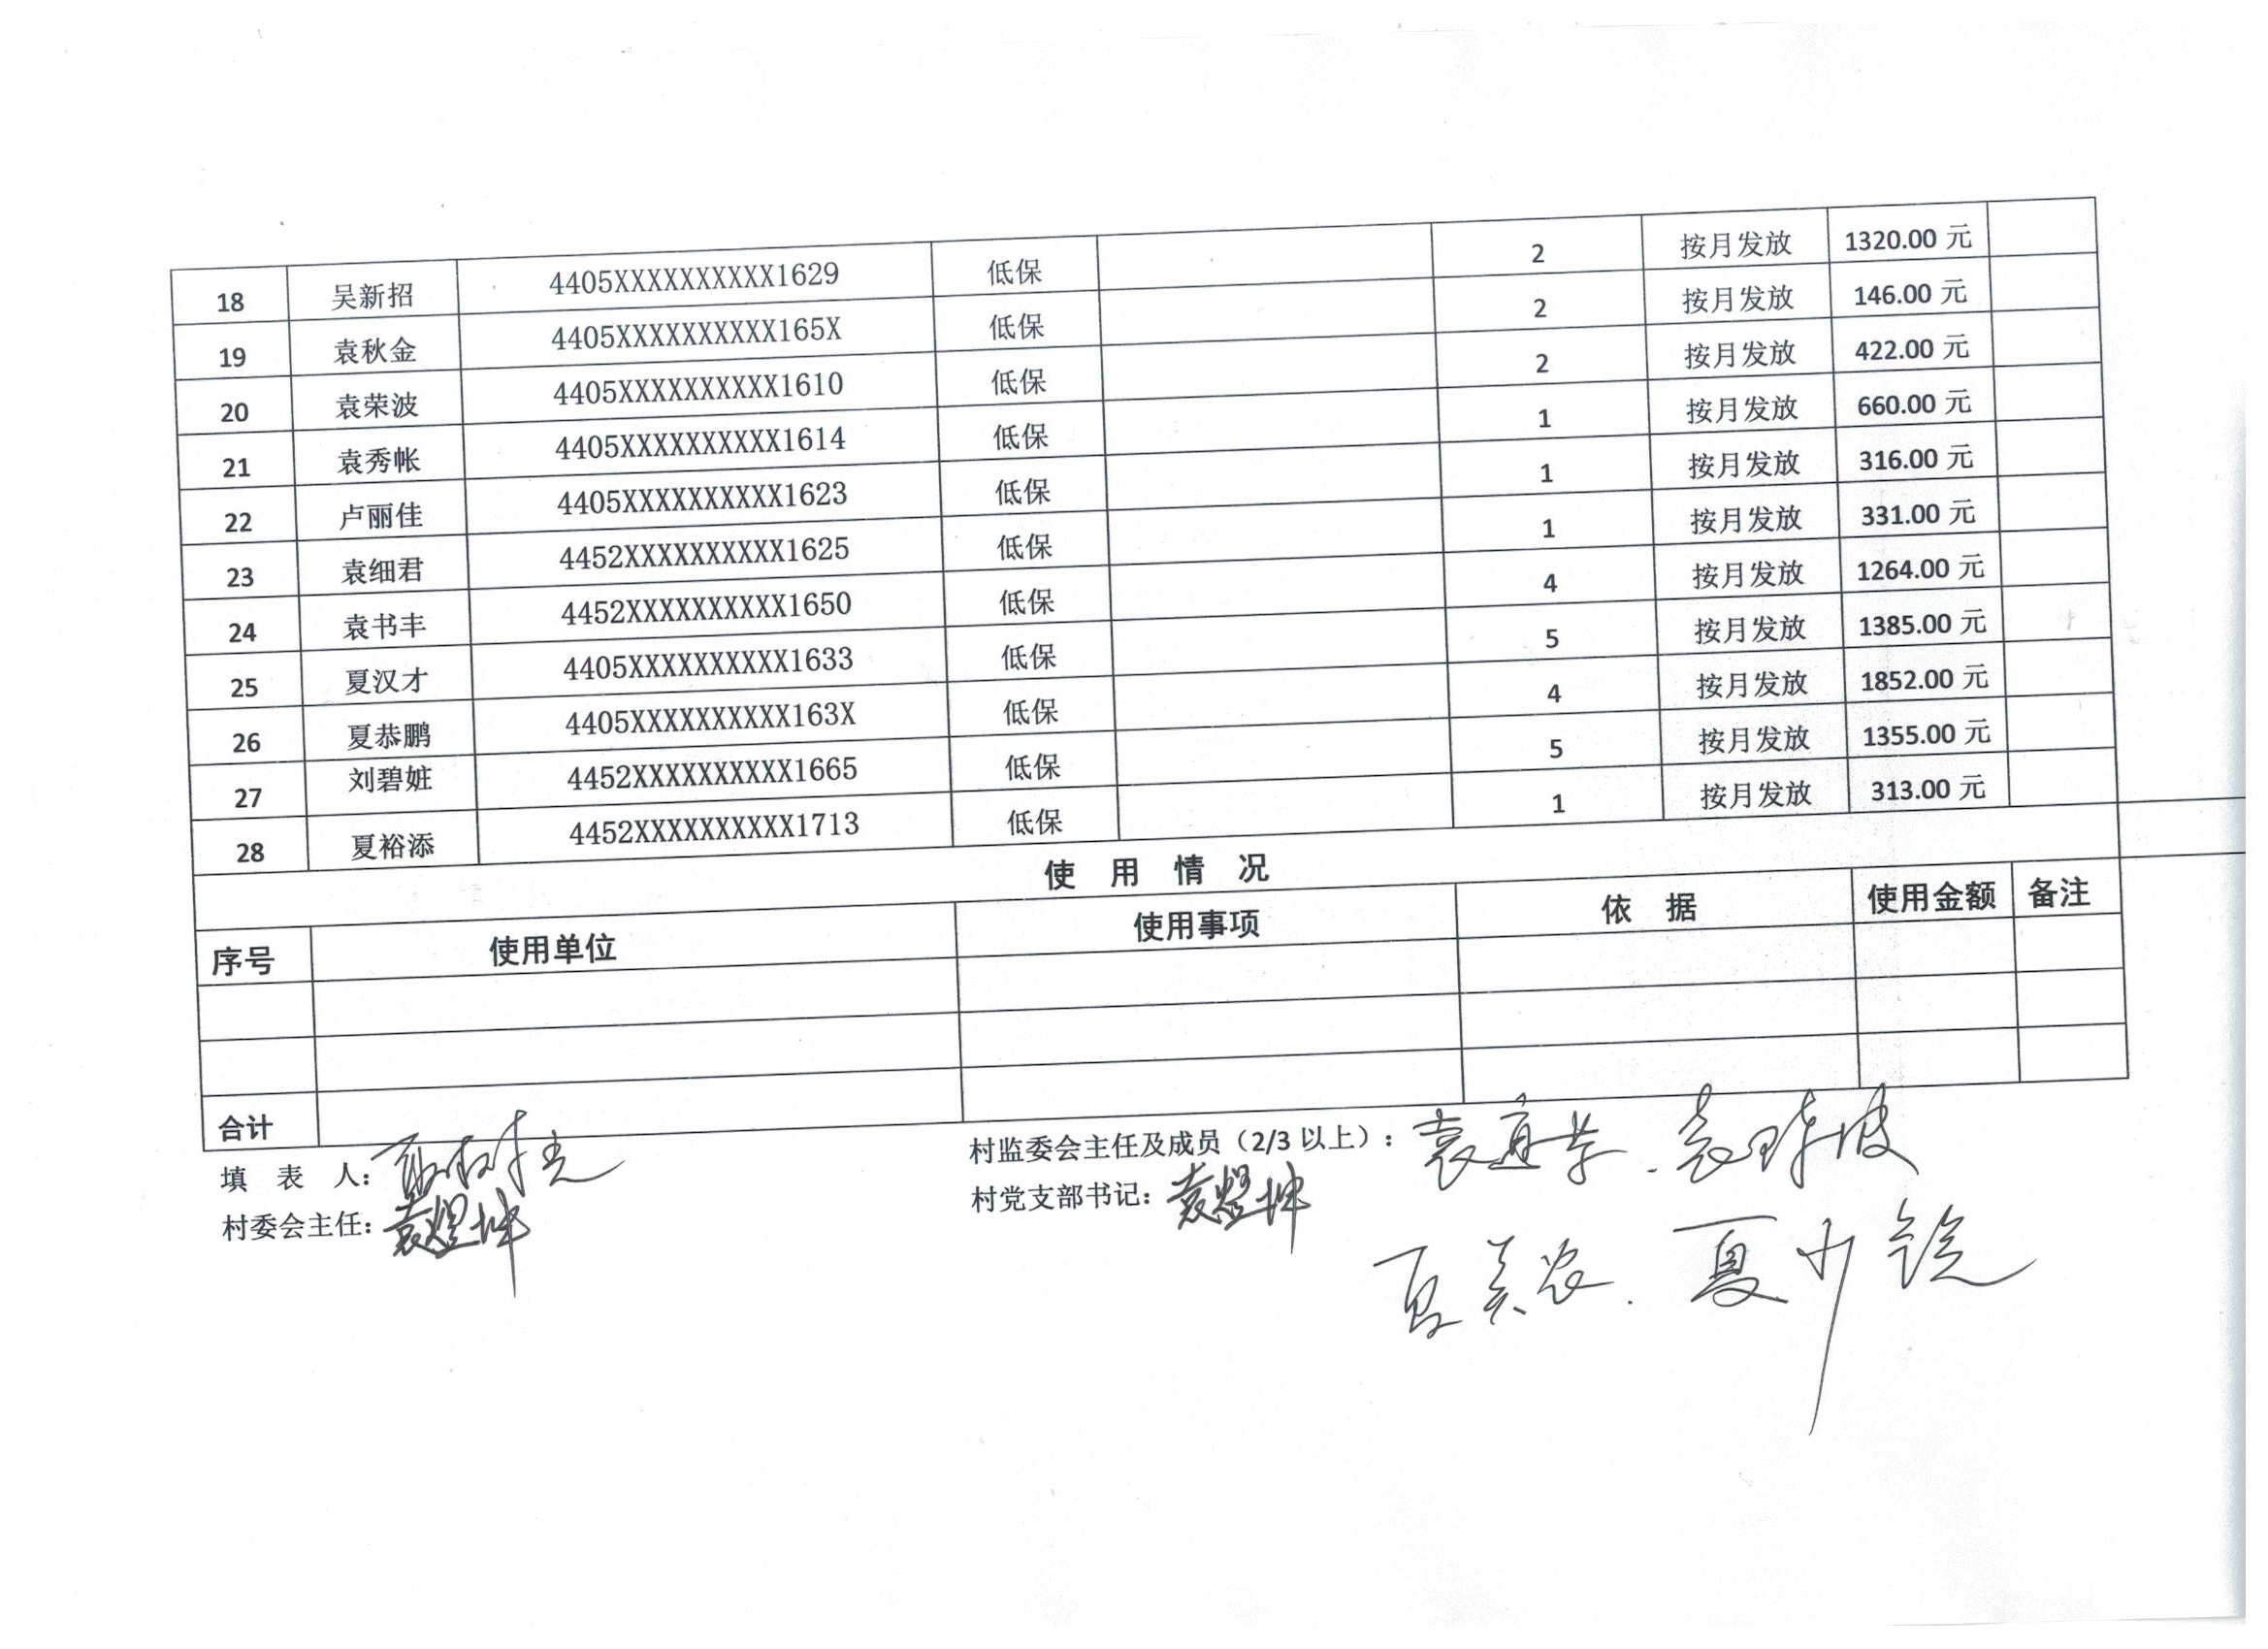 18 吴新招 4405XXXXXXXXXX1629 低保 2 按月发放 1320.00 元
19 袁秋金 4405XXXXXXXXXX165X 低保 2 按月发放 146.00 元
20 袁荣波 4405XXXXXXXXXX1610 低保 2 按月发放 422.00 元
21 袁秀帐 4405XXXXXXXXXX1614 低保 1 按月发放 660.00 元
22 卢丽佳 4405XXXXXXXXXX1623 低保 1 按月发放 316.00 元
23 袁细君 4452XXXXXXXXXX1625 低保 1 按月发放 331.00 元
24 袁书丰 4452XXXXXXXXXX1650 低保 4 按月发放 1264.00 元
25 夏汉才 4405XXXXXXXXXX1633 低保 5 按月发放 1385.00 元
26 夏恭鹏 4405XXXXXXXXXX163X 低保 4 按月发放 1852.00 元
27 刘碧妵 4452XXXXXXXXXX1665 低保 5 按月发放 1355.00 元
28 夏裕添 4452XXXXXXXXXX1713 低保 1 按月发放 313.00 元
使 用 情 况
序号 使用单位 使用事项 依 据 使用金额 备注
合计
填 表 人: 村监委会主任及成员（2/3 以上）:
村委会主任: 袁煜坤 村党支部书记: 袁煜坤